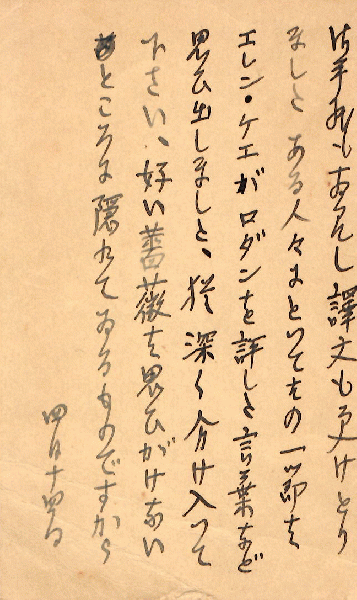 御手紙もあなたし譯文も受けとり
ました ある人々にとつてその一節を
エレン・ケエがロダンを評した言葉など
思ひ出しました、猶深く分け入つて
下さい、好い薔薇は思ひがけない
ところに隱れてゐるものですから
四月十四日